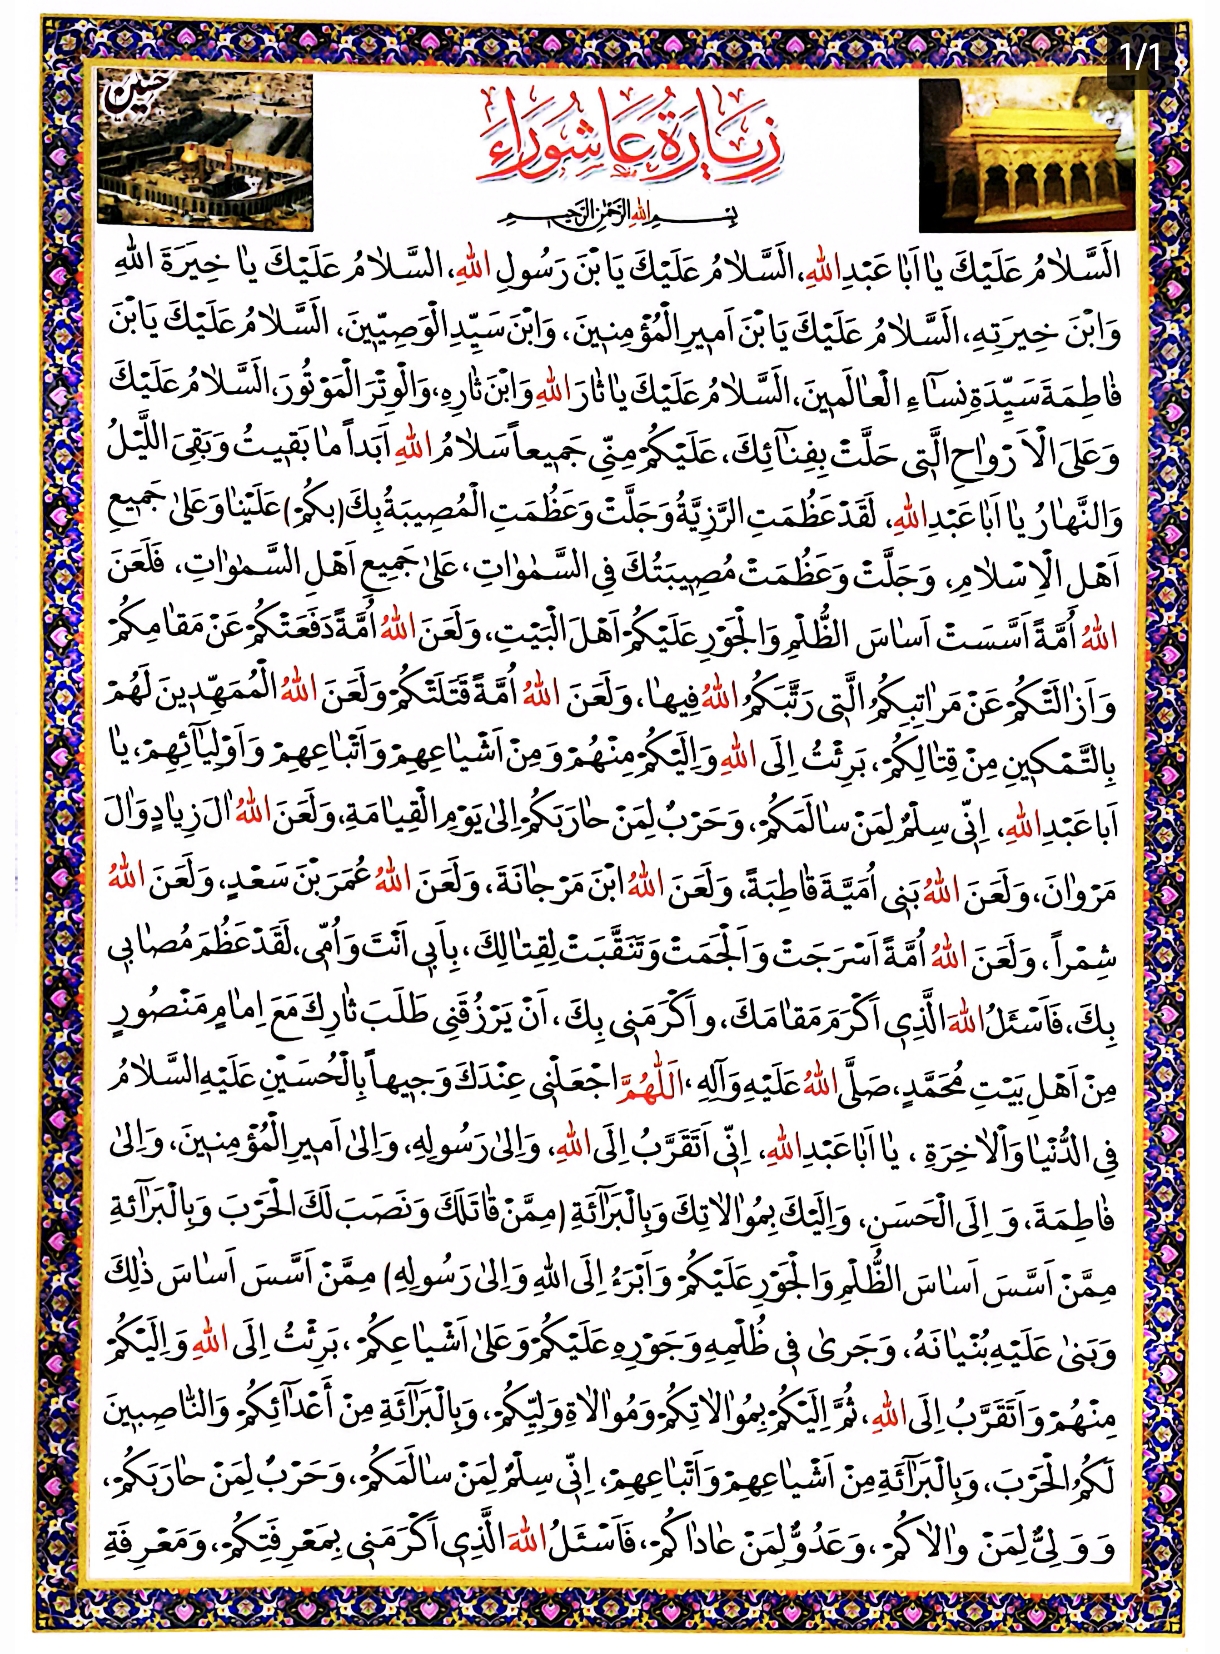 1/1
حسین
زِیَارَةُ عَاشُورَاءَ
بِسْمِ اللهِ الرَّحْمٰنِ الرَّحِیمِ
اَلسَّلامُ عَلَيْكَ يٰا اَبٰا عَبْدِاللهِ، اَلسَّلامُ عَلَيْكَ يَا بْنَ رَسُولِ اللهِ، السَّلامُ عَلَيْكَ يٰا خِيَرَةَ اللهِ
وَابْنَ خِيَرَتِهِ، اَلسَّلامُ عَلَيْكَ يَا بْنَ اَمیرِالْمُؤْمِنينَ، وَابْنَ سَيِّدِ الْوَصِيّينَ، اَلسَّلامُ عَلَيْكَ يَابْنَ
فٰاطِمَةَ سَيِّدَةِ نِسٰآءِ الْعٰالَمينَ، اَلسَّلامُ عَلَيْكَ يٰا ثٰارَ اللهِ وَابْنَ ثٰارِهِ، وَالْوِتْرَ الْمَوْتُورَ، اَلسَّلامُ عَلَيْكَ
وَعَلَى الْاَرْوٰاحِ الَّتى حَلَّتْ بِفِنٰآئِكَ، عَلَيْكُمْ مِنّى جَميعاً سَلامُ اللهِ اَبَداً مٰا بَقيتُ وَبَقِىَ اللَّيْلُ
وَالنَّهٰارُ يٰا اَبٰا عَبْدِ اللهِ، لَقَدْ عَظُمَتِ الرَّزِيَّةُ وَجَلَّتْ وَعَظُمَتِ الْمُصيبَةُ بِكَ (بِكُمْ) عَلَيْنٰا وَعَلىٰ جَميعِ
اَهْلِ الْاِسْلامِ، وَجَلَّتْ وَعَظُمَتْ مُصيبَتُكَ فِى السَّمٰوٰاتِ، عَلىٰ جَميعِ اَهْلِ السَّمٰوٰاتِ، فَلَعَنَ
اللهُ اُمَّةً اَسَّسَتْ اَسٰاسَ الظُّلْمِ وَالْجَوْرِ عَلَيْكُمْ اَهْلَ الْبَيْتِ، وَلَعَنَ اللهُ اُمَّةً دَفَعَتْكُمْ عَنْ مَقٰامِكُمْ
وَاَزٰالَتْكُمْ عَنْ مَرٰاتِبِكُمُ الَّتى رَتَّبَكُمُ اللهُ فيهٰا، وَلَعَنَ اللهُ اُمَّةً قَتَلَتْكُمْ وَلَعَنَ اللهُ الْمُمَهِّدينَ لَهُمْ
بِالتَّمْكينِ مِنْ قِتٰالِكُمْ، بَرِئْتُ اِلَى اللهِ وَاِلَيْكُمْ مِنْهُمْ وَمِنْ اَشْيٰاعِهِمْ وَاَتْبٰاعِهِمْ وَاَوْلِيٰآئِهِمْ، يٰا
اَبا عَبْدِ اللهِ، اِنّى سِلْمٌ لِمَنْ سٰالَمَكُمْ، وَحَرْبٌ لِمَنْ حٰارَبَكُمْ اِلىٰ يَوْمِ الْقِيٰامَةِ، وَلَعَنَ اللهُ اٰلَ زِيٰادٍ وَاٰلَ
مَرْوٰانَ، وَلَعَنَ اللهُ بَنى اُمَيَّةَ قٰاطِبَةً، وَلَعَنَ اللهُ ابْنَ مَرْجٰانَةَ، وَلَعَنَ اللهُ عُمَرَ بْنَ سَعْدٍ، وَلَعَنَ اللهُ
شِمْراً، وَلَعَنَ اللهُ اُمَّةً اَسْرَجَتْ وَاَلْجَمَتْ وَتَنَقَّبَتْ لِقِتٰالِكَ، بِاَبى اَنْتَ وَاُمّى، لَقَدْ عَظُمَ مُصٰابى
بِكَ، فَاَسْئَلُ اللهَ الَّذى اَكْرَمَ مَقٰامَكَ، واَكْرَمَنى بِكَ، اَنْ يَرْزُقَنى طَلَبَ ثٰارِكَ مَعَ اِمٰامٍ مَنْصُورٍ
مِنْ اَهْلِ بَيْتِ مُحَمَّدٍ، صَلَّى اللهُ عَلَيْهِ وَآلِهِ، اَللّٰهُمَّ اجْعَلْنى عِنْدَكَ وَجيهاً بِالْحُسَيْنِ عَلَيْهِ السَّلامُ
فِى الدُّنْيٰا وَالْاٰخِرَةِ، يٰا اَبٰا عَبْدِ اللهِ، اِنّى اَتَقَرَّبُ اِلَى اللهِ، وَاِلىٰ رَسُولِهِ، وَاِلىٰ اَميرِ الْمُؤْمِنينَ، وَاِلىٰ
فٰاطِمَةَ، وَ اِلَى الْحَسَنِ، وَاِلَيْكَ بِمُوٰالاٰتِكَ وَبِالْبَرٰآئَةِ (مِمَّنْ قٰاتَلَكَ وَنَصَبَ لَكَ الْحَرْبَ وَبِالْبَرٰآئَةِ
مِمَّنْ اَسَّسَ اَسٰاسَ الظُّلْمِ وَالْجَوْرِ عَلَيْكُمْ وَاَبْرَءُ اِلَى اللهِ وَاِلىٰ رَسُولِهِ) مِمَّنْ اَسَّسَ اَسٰاسَ ذٰلِكَ
وَبَنىٰ عَلَيْهِ بُنْيٰانَهُ، وَجَرىٰ فى ظُلْمِهِ وَجَوْرِهِ عَلَيْكُمْ وَعَلىٰ اَشْيٰاعِكُمْ، بَرِئْتُ اِلَى اللهِ وَاِلَيْكُمْ
مِنْهُمْ وَاَتَقَرَّبُ اِلَى اللهِ، ثُمَّ اِلَيْكُمْ بِمُوٰالاٰتِكُمْ وَمُوٰالاٰةِ وَلِيِّكُمْ، وَبِالْبَرٰآئَةِ مِنْ أَعْدٰآئِكُمْ وَالنّٰاصِبينَ
لَكُمُ الْحَرْبَ، وَبِالْبَرٰآئَةِ مِنْ اَشْيٰاعِهِمْ وَاَتْبٰاعِهِمْ، اِنّى سِلْمٌ لِمَنْ سٰالَمَكُمْ، وَحَرْبٌ لِمَنْ حٰارَبَكُمْ،
وَ وَلِىٌّ لِمَنْ وٰالاٰكُمْ، وَعَدُوٌّ لِمَنْ عٰادٰاكُمْ، فَاَسْئَلُ اللهَ الَّذى اَكْرَمَنى بِمَعْرِفَتِكُمْ، وَمَعْرِفَةِ